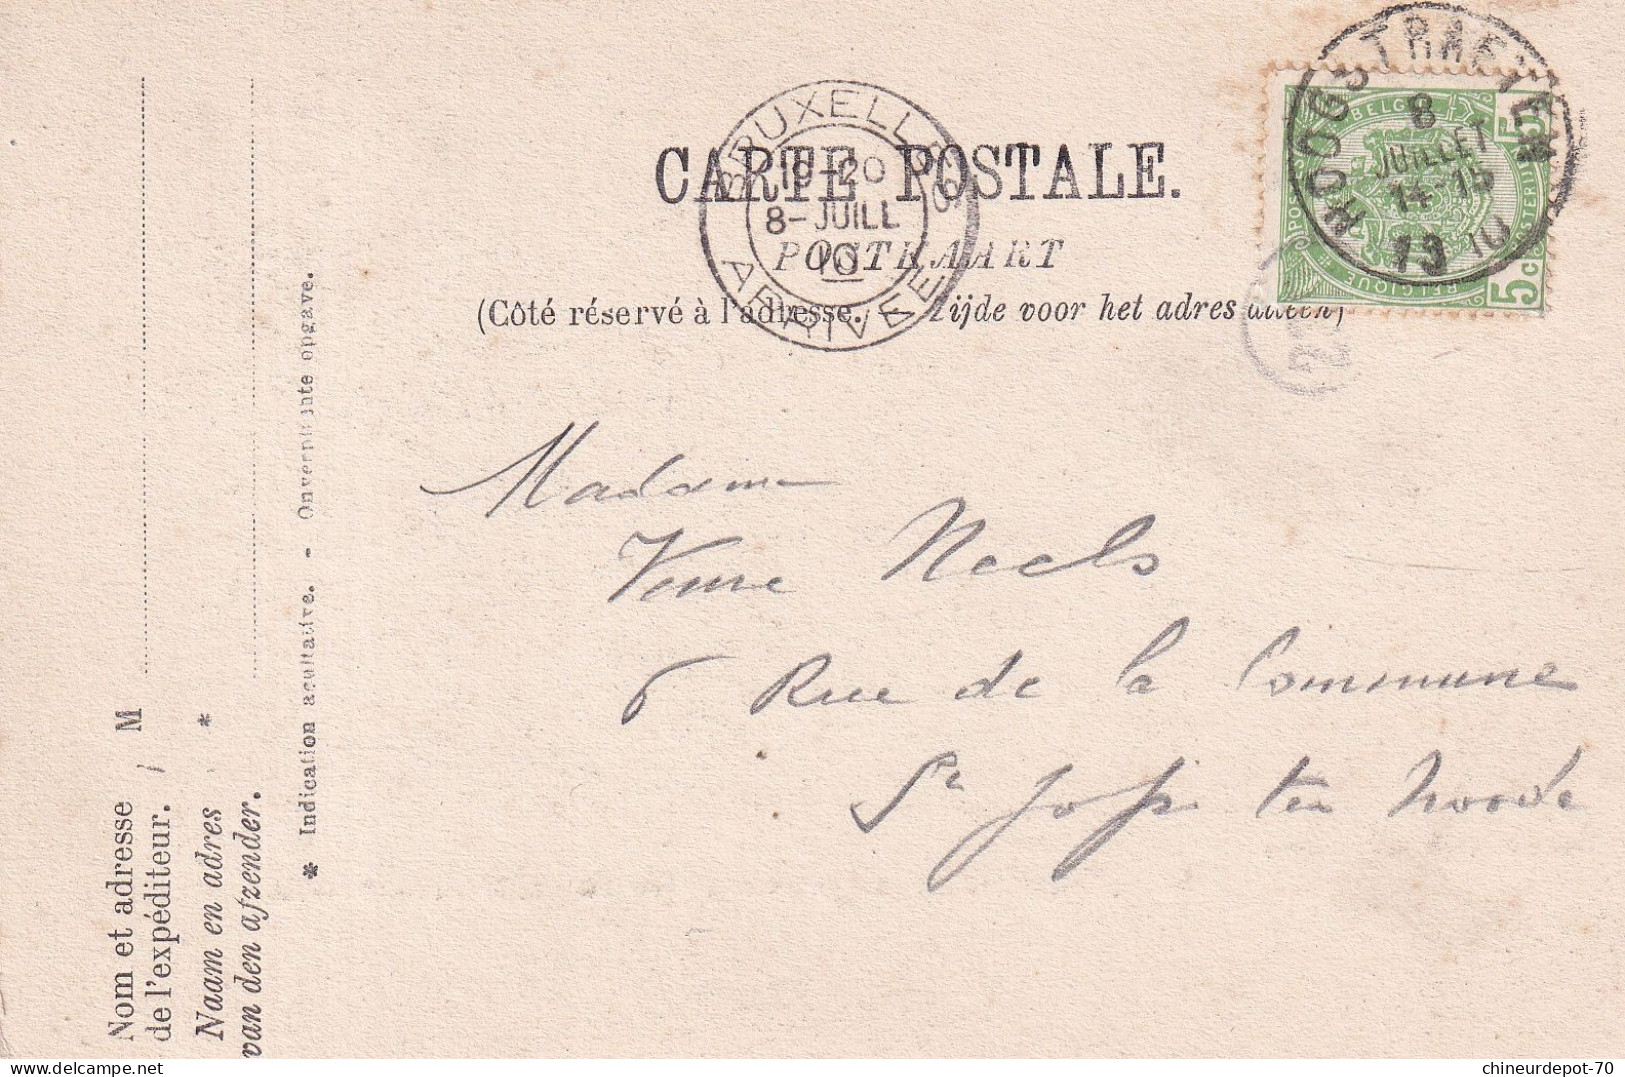 CARTE POSTALE.
POSTKAART
(Côté réservé à l'adresse. — Zijde voor het adres alleen)
BRUXELLES
19-20
8-JUILL
10
ARRIVEE
HOOGSTRAETEN
8
JUILLET
14-15
1910
BELGIË
POSTERIJEN
POSTE BELGIQUE
5c 5c
Madame
Veuve Neels
6 Rue de la Commune
St Josse ten Noode
Nom et adresse M
de l'expéditeur.
Naam en adres *
van den afzender.
* Indication facultative. - Onverplichte opgave.
chineurdepot-70